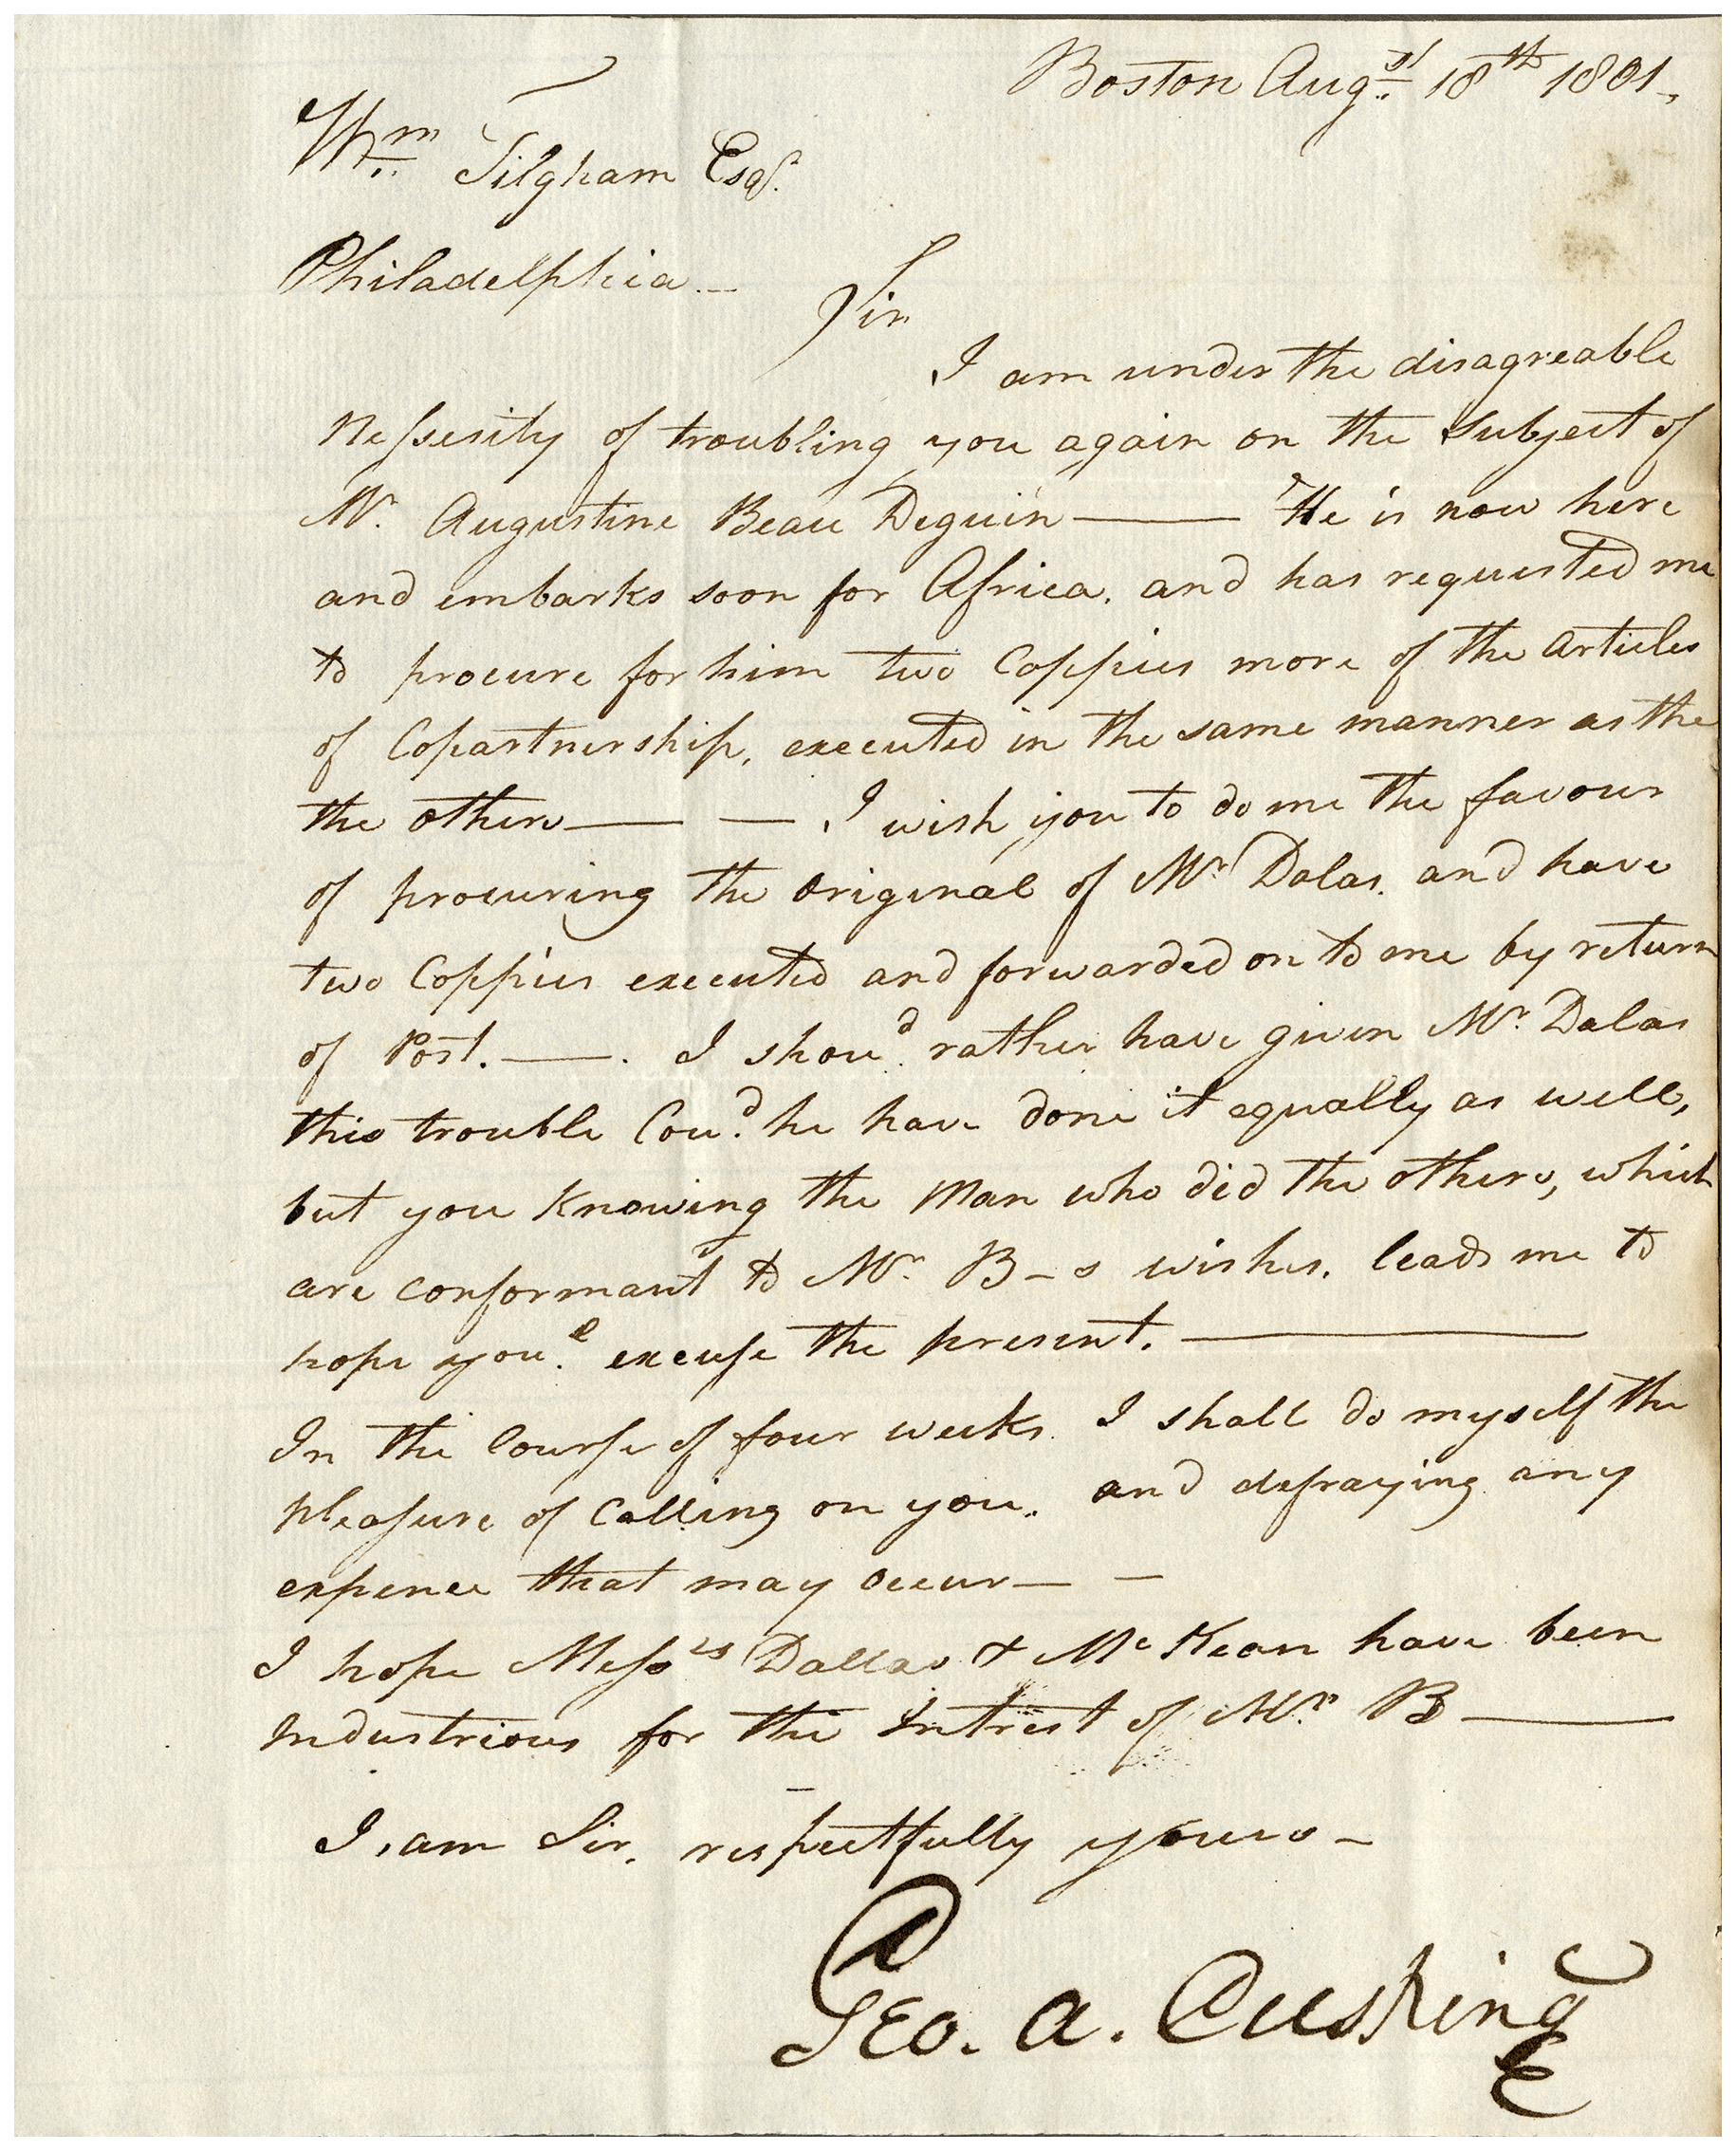 Boston Augst 18th 1801,
Wm Tilgham Esqr.
Philadelphia —
Sir
I am under the disagreable
Nessesity of troubling you again on the Subject of
Mr. Augustine Beau Deguin —— He is now here
and embarks soon for Africa, and has requested me
to procure for him two Coppies more of the Articles
of Copartnership, executed in the same manner as the
the others —— — I wish you to do me the favour
of procuring the original of Mr. Dalas, and have
two Coppies executed and forwarded on to me by return
of Post. ——. I shoud. rather have given Mr. Dalas
this trouble Coud. he have done it equally as well,
but you Knowing the Man who did the others, which
are conformant to Mr. B—s wishes, leads me to
hope you.l excuse the present. ——
In the Course of four weeks I shall do myself the
pleasure of Calling on you. and defraying any
expence that may occur — —
I hope Messrs Dallas & McKean have been
Industrious for the Intrest of Mr. B ——
I am Sir, respectfully yours —
Geo. A. Cushing